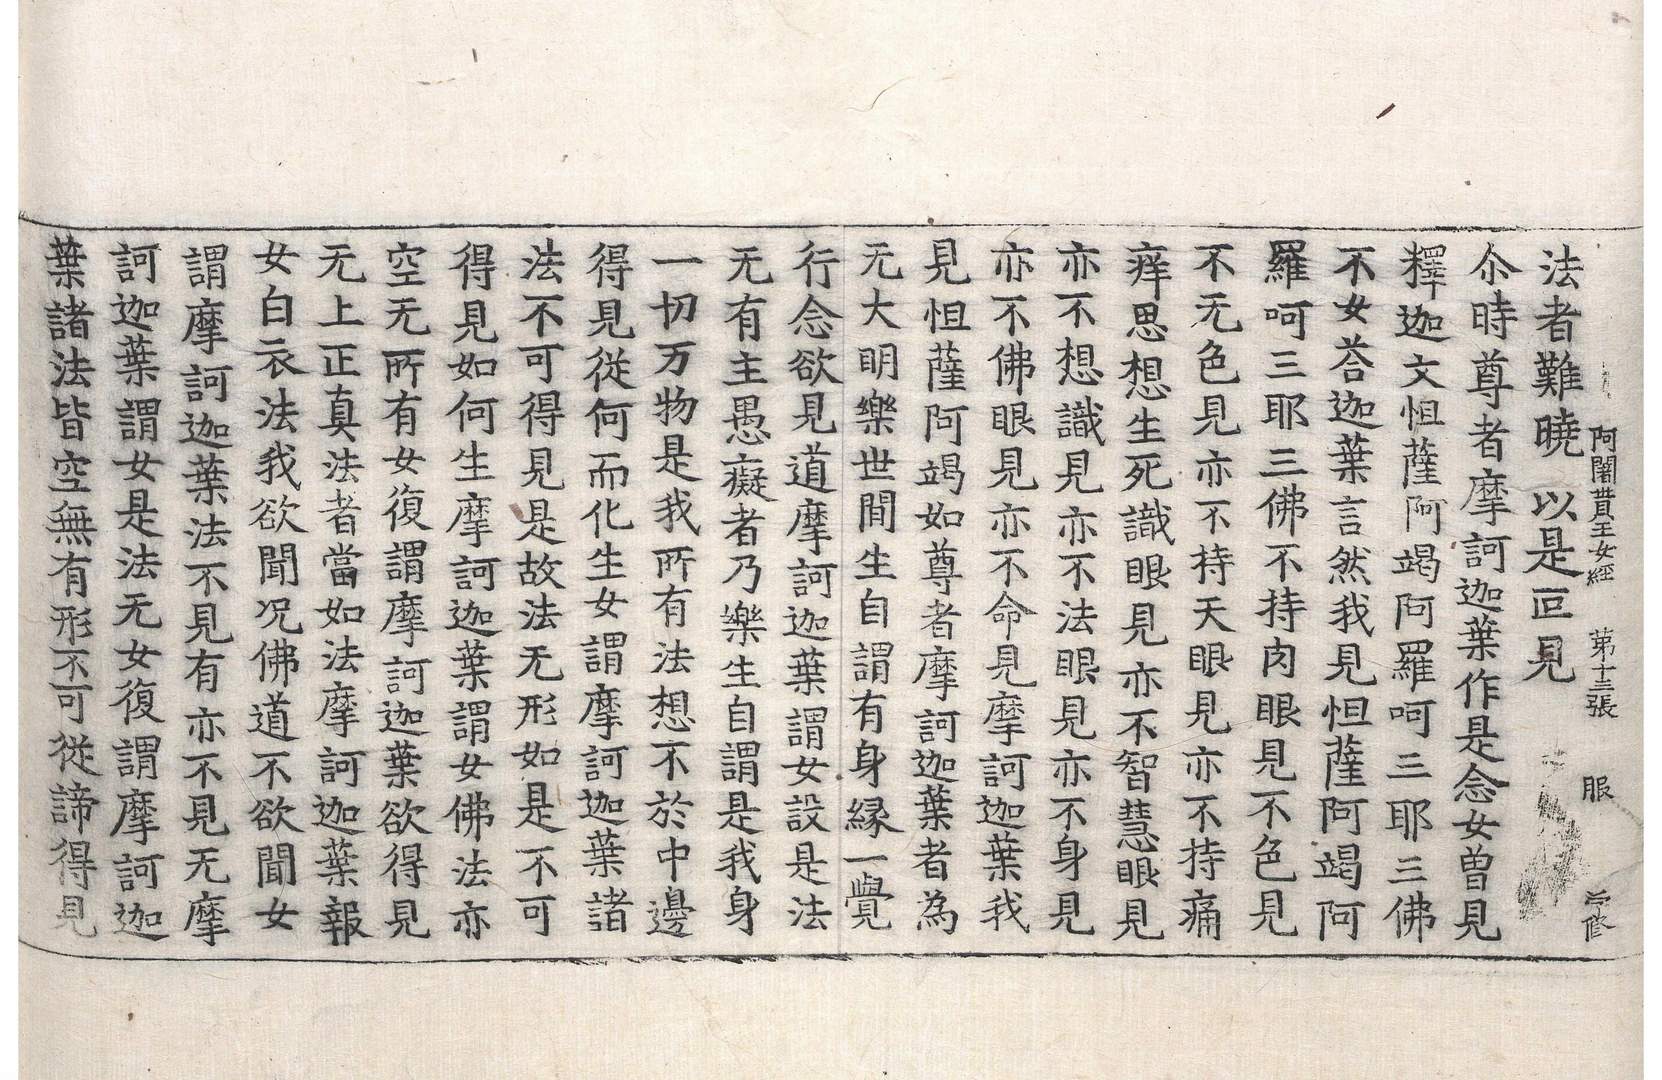 阿闍貰王女經　第十三張　服
法者難曉以是叵見
尒時尊者摩訶迦葉作是念女曽見
釋迦文怛薩阿竭阿羅呵三耶三佛
不女荅迦葉言然我見怛薩阿竭阿
羅呵三耶三佛不持肉眼見不色見
不无色見亦不持天眼見亦不持痛
痒思想生死識眼見亦不智慧眼見
亦不想識見亦不法眼見亦不身見
亦不佛眼見亦不命見摩訶迦葉我
見怛薩阿竭如尊者摩訶迦葉者為
无大明樂世間生自謂有身縁一覺
行念欲見道摩訶迦葉謂女設是法
无有主愚癡者乃樂生自謂是我身
一切万物是我所有法想不於中邊
得見從何而化生女謂摩訶迦葉諸
法不可得見是故法无形如是不可
得見如何生摩訶迦葉謂女佛法亦
空无所有女復謂摩訶迦葉欲得見
无上正真法者當如法摩訶迦葉報
女白衣法我欲聞況佛道不欲聞女
謂摩訶迦葉法不見有亦不見无摩
訶迦葉謂女是法无女復謂摩訶迦
葉諸法皆空無有形不可從諦得見